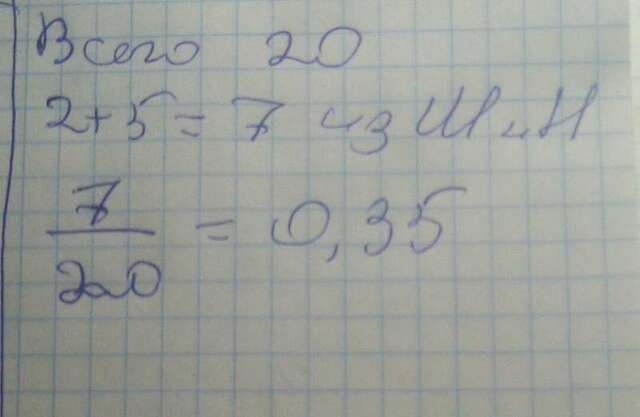 Всего 20
2+5=7 из Ш и Н
7
20 = 0,35